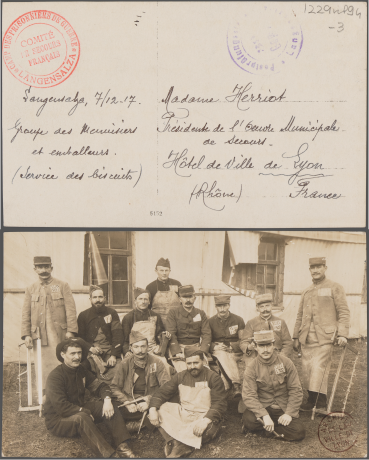 CAMP DES PRISONNIERS DE GUERRE
COMITÉ
DE SECOURS
FRANÇAIS
LANGENSALZA
1229WP94
-3
Langensalza, 7/12.17.
Groupe des Menuisiers
et emballeurs.
(Service des biscuits)
Madame Herriot
Présidente de l'Oeuvre Municipale
de Secours.
Hôtel de Ville de Lyon
(Rhône)
France